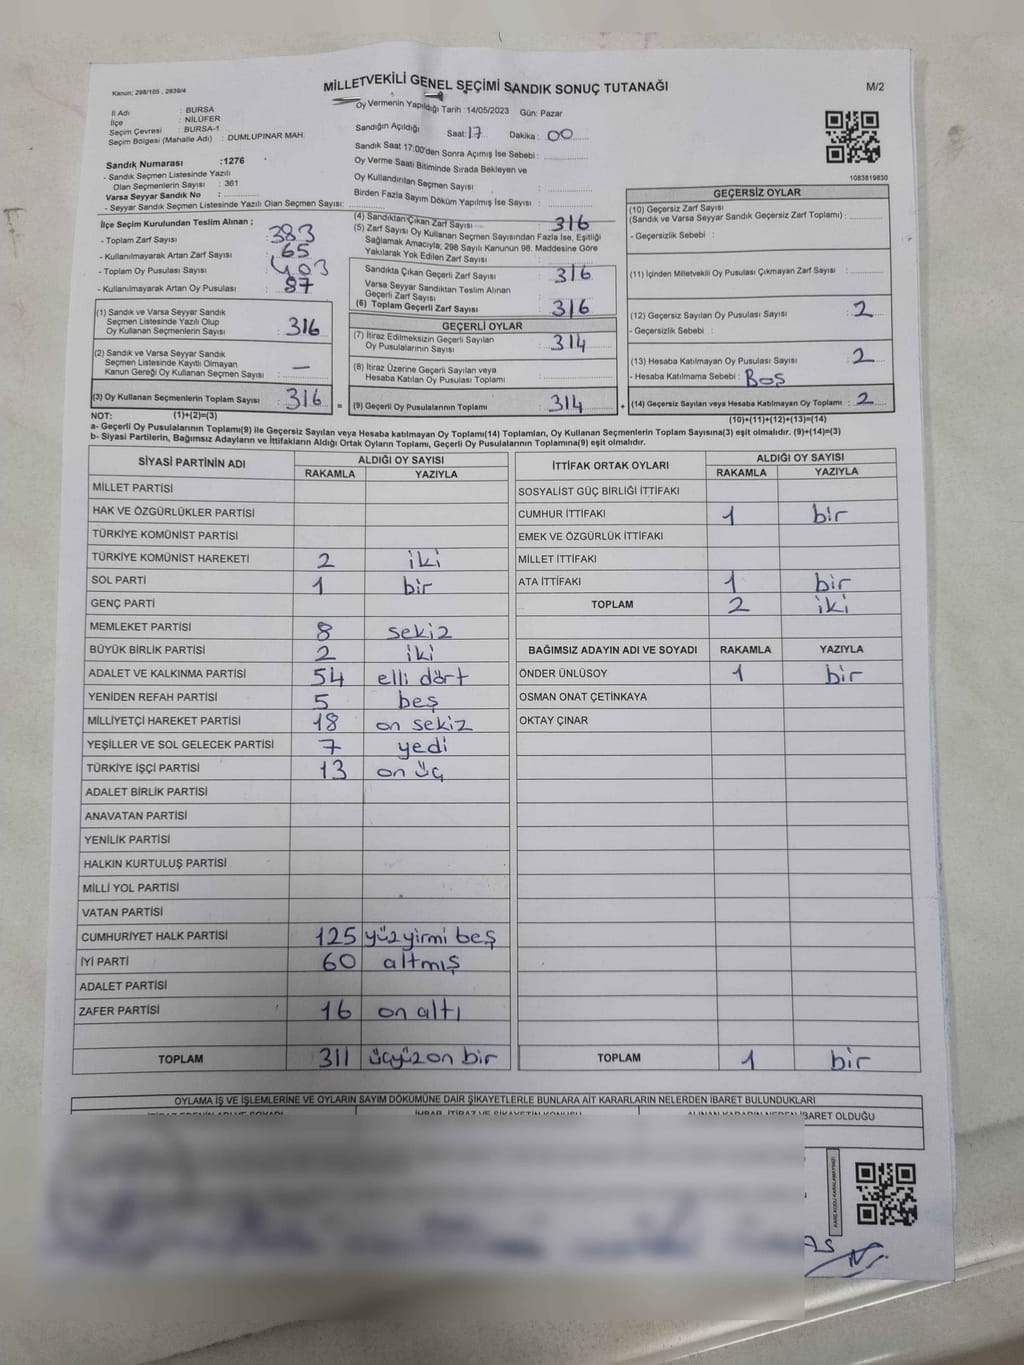 MİLLETVEKİLİ GENEL SEÇİMİ SANDIK SONUÇ TUTANAĞI
M/2
Kanun: 298/105 , 2839/4
İl Adı : BURSA
İlçe : NİLÜFER
Seçim Çevresi : BURSA-1
Seçim Bölgesi (Mahalle Adı) : DUMLUPINAR MAH.
Sandık Numarası :1276
- Sandık Seçmen Listesinde Yazılı
Olan Seçmenlerin Sayısı : 361
Varsa Seyyar Sandık No :
- Seyyar Sandık Listesinde Yazılı Olan Seçmen Sayısı:
Oy Vermenin Yapıldığı Tarih :14/05/2023 Gün: Pazar
Sandığın Açıldığı Saat: 17 Dakika : 00
Sandık Saat 17:00'den Sonra Açılmış İse Sebebi :
Oy Verme Saati Bitiminde Sırada Bekleyen ve
Oy Kullandırılan Seçmen Sayısı :
Birden Fazla Sayım Döküm Yapılmış İse Sayısı :
1083819830
İlçe Seçim Kurulundan Teslim Alınan ;
- Toplam Zarf Sayısı : 383
- Kullanılmayarak Artan Zarf Sayısı : 65
- Toplam Oy Pusulası Sayısı : 403
- Kullanılmayarak Artan Oy Pusulası : 87
(1) Sandık ve Varsa Seyyar Sandık
Seçmen Listesinde Yazılı Olup
Oy Kullanan Seçmenlerin Sayısı : 316
(2) Sandık ve Varsa Seyyar Sandık
Seçmen Listesinde Kayıtlı Olmayan
Kanun Gereği Oy Kullanan Seçmen Sayısı : —
(3) Oy Kullanan Seçmenlerin Toplam Sayısı : 316 =
(4) Sandıktan Çıkan Zarf Sayısı : 316
(5) Zarf Sayısı Oy Kullanan Seçmen Sayısından Fazla İse, Eşitliği
Sağlamak Amacıyla; 298 Sayılı Kanunun 98. Maddesine Göre
Yakılarak Yok Edilen Zarf Sayısı :
Sandıkta Çıkan Geçerli Zarf Sayısı : 316
Varsa Seyyar Sandıktan Teslim Alınan
Geçerli Zarf Sayısı :
(6) Toplam Geçerli Zarf Sayısı : 316
GEÇERLİ OYLAR
(7) İtiraz Edilmeksizin Geçerli Sayılan
Oy Pusulalarının Sayısı : 314
(8) İtiraz Üzerine Geçerli Sayılan veya
Hesaba Katılan Oy Pusulası Toplamı :
(9) Geçerli Oy Pusulalarının Toplamı : 314 +
GEÇERSİZ OYLAR
(10) Geçersiz Zarf Sayısı
(Sandık ve Varsa Seyyar Sandık Geçersiz Zarf Toplamı) :
- Geçersizlik Sebebi :
(11) İçinden Milletvekili Oy Pusulası Çıkmayan Zarf Sayısı :
(12) Geçersiz Sayılan Oy Pusulası Sayısı : 2
- Geçersizlik Sebebi :
(13) Hesaba Katılmayan Oy Pusulası Sayısı : 2
- Hesaba Katılmama Sebebi : Boş
(14) Geçersiz Sayılan veya Hesaba Katılmayan Oy Toplamı : 2
NOT: (1)+(2)=(3) (10)+(11)+(12)+(13)=(14)
a- Geçerli Oy Pusulasının Toplamı(9) ile Geçersiz Sayılan veya Hesaba katılmayan Oy Toplamı(14) Toplamları, Oy Kullanan Seçmenlerin Toplam Sayısına(3) eşit olmalıdır. (9)+(14)=(3)
b- Siyasi Partilerin, Bağımsız Adayların ve İttifakların Aldığı Ortak Oyların Toplamı, Geçerli Oy Pusulalarının Toplamına(9) eşit olmalıdır.
SİYASİ PARTİNİN ADI ALDIĞI OY SAYISI
RAKAMLA YAZIYLA
MİLLET PARTİSİ
HAK VE ÖZGÜRLÜKLER PARTİSİ
TÜRKİYE KOMÜNİST PARTİSİ
TÜRKİYE KOMÜNİST HAREKETİ 2 iki
SOL PARTİ 1 bir
GENÇ PARTİ
MEMLEKET PARTİSİ 8 sekiz
BÜYÜK BİRLİK PARTİSİ 2 iki
ADALET VE KALKINMA PARTİSİ 54 elli dört
YENİDEN REFAH PARTİSİ 5 beş
MİLLİYETÇİ HAREKET PARTİSİ 18 on sekiz
YEŞİLLER VE SOL GELECEK PARTİSİ 7 yedi
TÜRKİYE İŞÇİ PARTİSİ 13 on üç
ADALET BİRLİK PARTİSİ
ANAVATAN PARTİSİ
YENİLİK PARTİSİ
HALKIN KURTULUŞ PARTİSİ
MİLLİ YOL PARTİSİ
VATAN PARTİSİ
CUMHURİYET HALK PARTİSİ 125 yüzyirmi beş
İYİ PARTİ 60 altmış
ADALET PARTİSİ
ZAFER PARTİSİ 16 on altı
TOPLAM 311 üçyüz on bir
İTTİFAK ORTAK OYLARI ALDIĞI OY SAYISI
RAKAMLA YAZIYLA
SOSYALİST GÜÇ BİRLİĞİ İTTİFAKI
CUMHUR İTTİFAKI 1 bir
EMEK VE ÖZGÜRLÜK İTTİFAKI
MİLLET İTTİFAKI
ATA İTTİFAKI 1 bir
TOPLAM 2 iki
BAĞIMSIZ ADAYIN ADI VE SOYADI RAKAMLA YAZIYLA
ÖNDER ÜNLÜSOY 1 bir
OSMAN ONAT ÇETİNKAYA
OKTAY ÇINAR
TOPLAM 1 bir
OYLAMA İŞ VE İŞLEMLERİNE VE OYLARIN SAYIM DÖKÜMÜNE DAİR ŞİKAYETLERLE BUNLARA AİT KARARLARIN NELERDEN İBARET BULUNDUKLARI
İBARET OLDUĞU